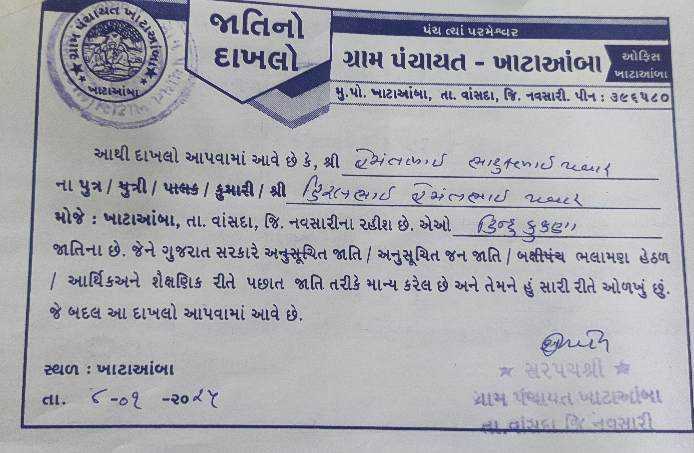 ગ્રામ પંચાયત ખાટાઆંબા
ખાટાઆંબા
જાતિનો
દાખલો
પંચ ત્યાં પરમેશ્વર
ગ્રામ પંચાયત - ખાટાઆંબા
ઓફિસ
ખાટાઆંબા
મુ.પો. ખાટાઆંબા, તા. વાંસદા, જિ. નવસારી. પીન : ૩૯૬૫૮૦
આથી દાખલો આપવામાં આવે છે કે, શ્રી હેમંતભાઈ
ના પુત્ર / પુત્રી / પાલક / કુમારી / શ્રી હેમંતભાઈ
મોજે : ખાટાઆંબા, તા. વાંસદા, જિ. નવસારીના રહીશ છે. એઓ હિન્દુ કુકણા
જાતિના છે. જેને ગુજરાત સરકારે અનુસૂચિત જાતિ / અનુસૂચિત જન જાતિ / બક્ષીપંચ ભલામણ હેઠળ
/ આર્થિકઅને શૈક્ષણિક રીતે પછાત જાતિ તરીકે માન્ય કરેલ છે અને તેમને હું સારી રીતે ઓળખું છું.
જે બદલ આ દાખલો આપવામાં આવે છે.
સ્થળ : ખાટાઆંબા
સરપંચશ્રી
તા. ૬-૦૧ -૨૦૨૫
ગ્રામ પંચાયત ખાટાઆંબા
તા.વાંસદા જિ.નવસારી